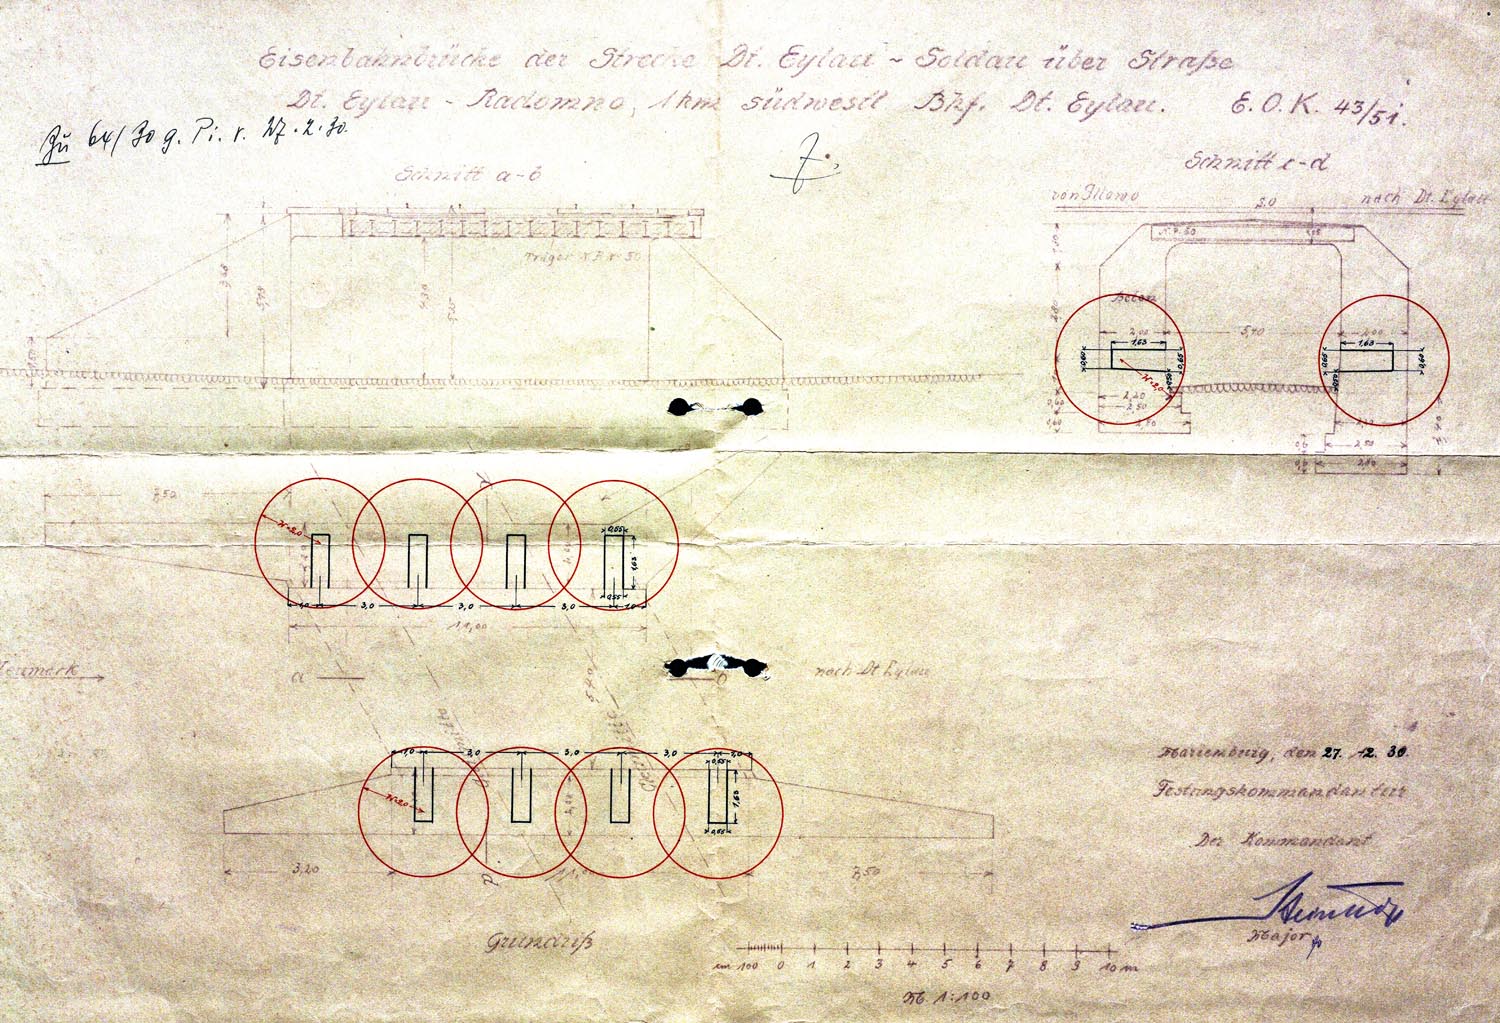 Eisenbahnbrücke der Strecke Dt. Eylau ~ Soldau über Straße
Dt. Eylau - Radomno, 1 km südwestl Bhf. Dt. Eylau. E.O.K. 43/51.
Zu 64/30 g. Pi. v. 27.2.30.
Schnitt a-b
Schnitt c-d
von Illowo
S.O
nach Dt. Eylau
Träger N.P. No 50
N.P. 50
Beton
2,00
5,40
2,00
1,63
1,63
0,60
0,65
0,65
0,60
0,50
0,50
W=2,0
2,20
2,50
2,80
0,60
0,60
2,50
2,80
7,50
W=2,0
0,55
1,63
0,55
1,0
3,0
3,0
3,0
1,0
11,00
a
nach Dt Eylau
5,40
1,0
3,0
3,0
3,0
1,0
0,55
W=2,0
1,63
0,55
3,20
11,00
7,50
Marienburg, den 27. 12. 30.
Festungskommandantur
Der Kommandant
Major
Grundriß
cm 100 0 1 2 3 4 5 6 7 8 9 10 m
M. 1:100